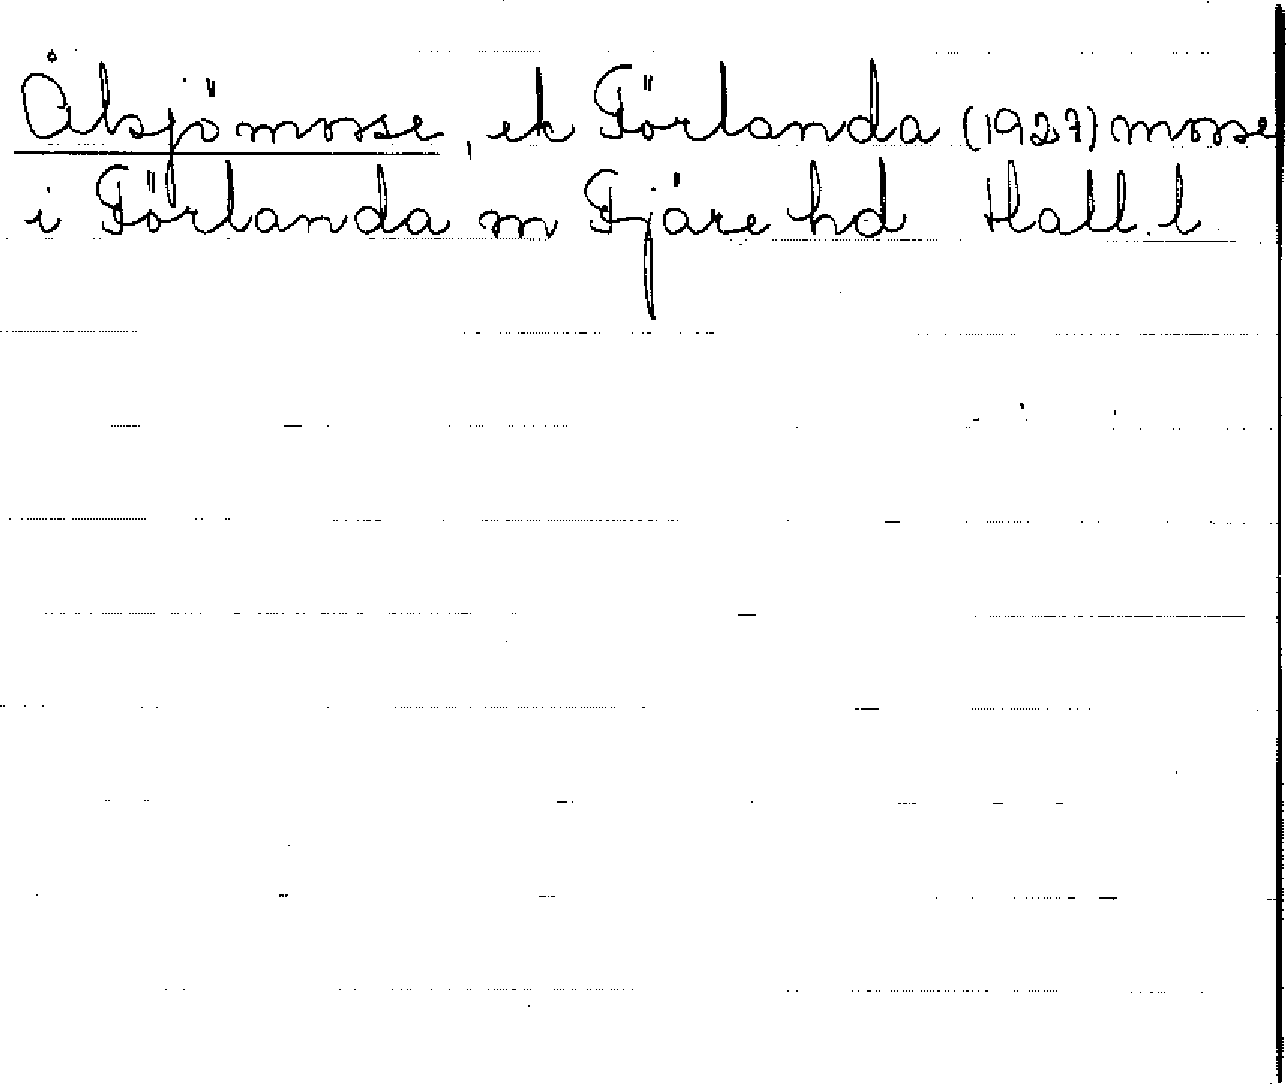 Ålsjömosse, ek Förlanda (1927) mosse
i Förlanda sn Fjäre hd Hall. l